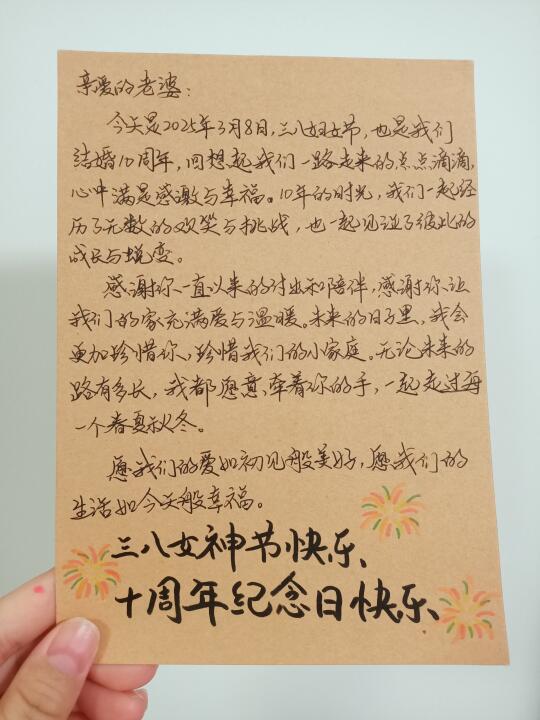 亲爱的老婆：
今天是2025年3月8日，三八妇女节，也是我们
结婚10周年，回想起我们一路走来的点点滴滴，
心中满是感激与幸福。10年的时光，我们一起经
历了无数的欢笑与挑战，也一起见证了彼此的
成长与蜕变。
感谢你一直以来的付出和陪伴，感谢你让
我们的家充满爱与温暖。未来的日子里，我会
更加珍惜你，珍惜我们的小家庭。无论未来的
路有多长，我都愿意牵着你的手，一起走过每
一个春夏秋冬。
愿我们的爱如初见般美好，愿我们的
生活如今天般幸福。
三八女神节快乐、
十周年纪念日快乐、